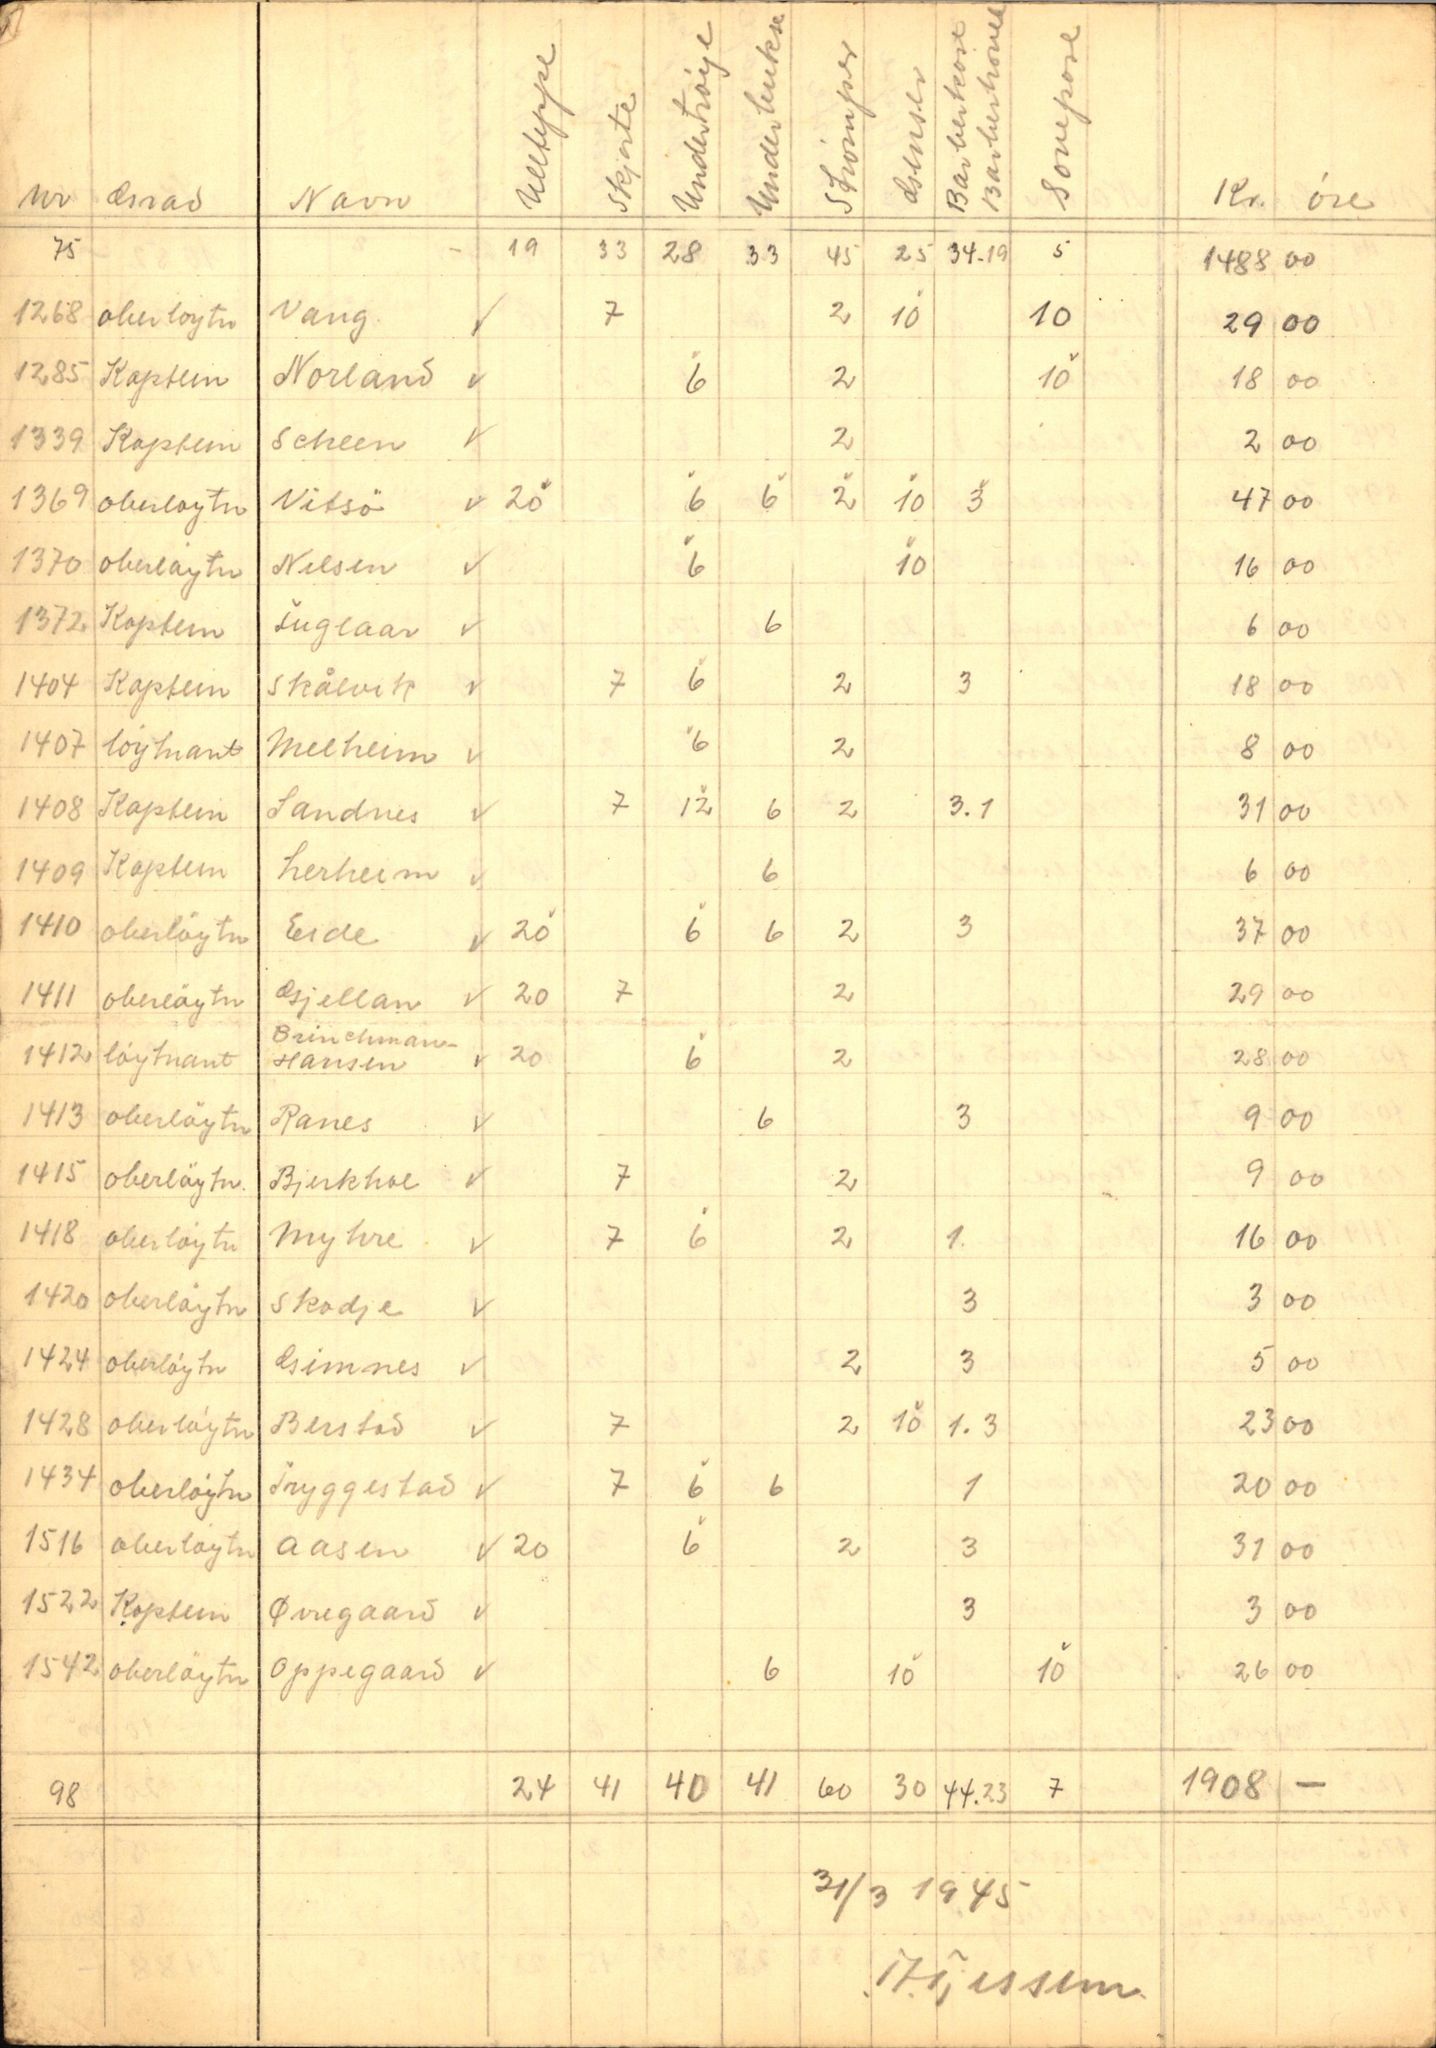 Nr Grad Navn Ullteppe Skjorte Undertröye Underbukse Strömper Genser Barberkose Barberhövel Sovepose Kr. öre
75 - 19 33 28 33 45 25 34-19 5 1488 00
1268 oberløytn Vang ✓ 7 2 10 10 29 00
1285 Kaptein Norland ✓ 6 2 10 18 00
1339 Kaptein Scheen ✓ 2 2 00
1369 oberløytn Vitsö ✓ 20 6 6 2 10 3 47 00
1370 oberløytn Nilsen ✓ 6 10 16 00
1372 Kaptein Fuglaar ✓ 6 6 00
1404 Kaptein Skålvik ✓ 7 6 2 3 18 00
1407 löytnant Melheim ✓ 6 2 8 00
1408 Kaptein Sandnes ✓ 7 12 6 2 3.1 31 00
1409 Kaptein Lerheim ✓ 6 6 00
1410 oberlöytn Eide ✓ 20 6 6 2 3 37 00
1411 oberlöytn Gjellan ✓ 20 7 2 29 00
1412 löytnant Brinchman-
Hansen ✓ 20 6 2 28 00
1413 oberlöytn Ranes ✓ 6 3 9 00
1415 oberlöytn. Bjerkhoe ✓ 7 2 9 00
1418 oberlöytn Myhre ✓ 7 6 2 1. 16 00
1420 oberlöytn Skodje ✓ 3 3 00
1424 oberlöytn Gimnes ✓ 2 3 5 00
1428 oberlöytn Berstad ✓ 7 2 10 1.3 23 00
1434 oberlöytn Tryggestad ✓ 7 6 6 1 20 00
1516 oberlöytn Aasen ✓ 20 6 2 3 31 00
1522 Kaptein Øvregaard ✓ 3 3 00
1542 oberlöytn Oppegaard ✓ 6 10 10 26 00
98 24 41 40 41 60 30 44.23 7 1908 —
31/3 1945